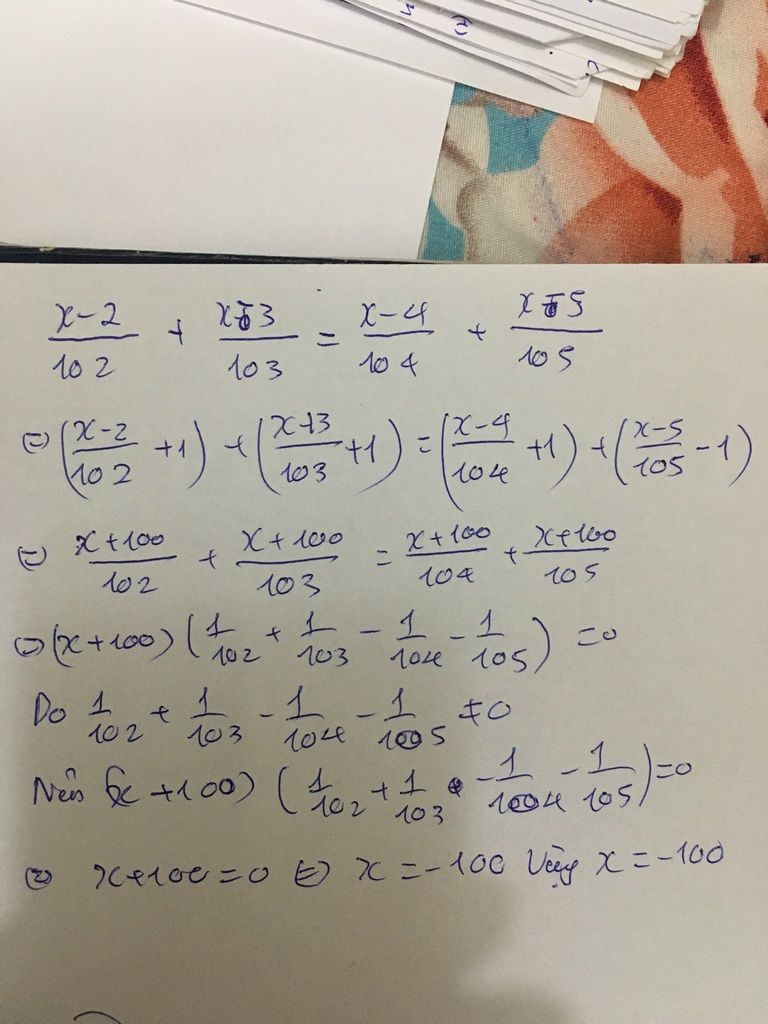 x-2/102 + x-3/103 = x-4/104 + x-5/105
⇔ (x-2/102 +1) + (x+3/103 +1) = (x-4/104 +1) + (x-5/105 -1)
⇔ x+100/102 + x+100/103 = x+100/104 + x+100/105
⇔ (x+100) (1/102 + 1/103 - 1/104 - 1/105) =0
Do 1/102 + 1/103 - 1/104 - 1/105 ≠0
Nên (x+100) (1/102 + 1/103 - 1/104 - 1/105)=0
⇔ x+100=0 ⇔ x=-100 Vậy x=-100